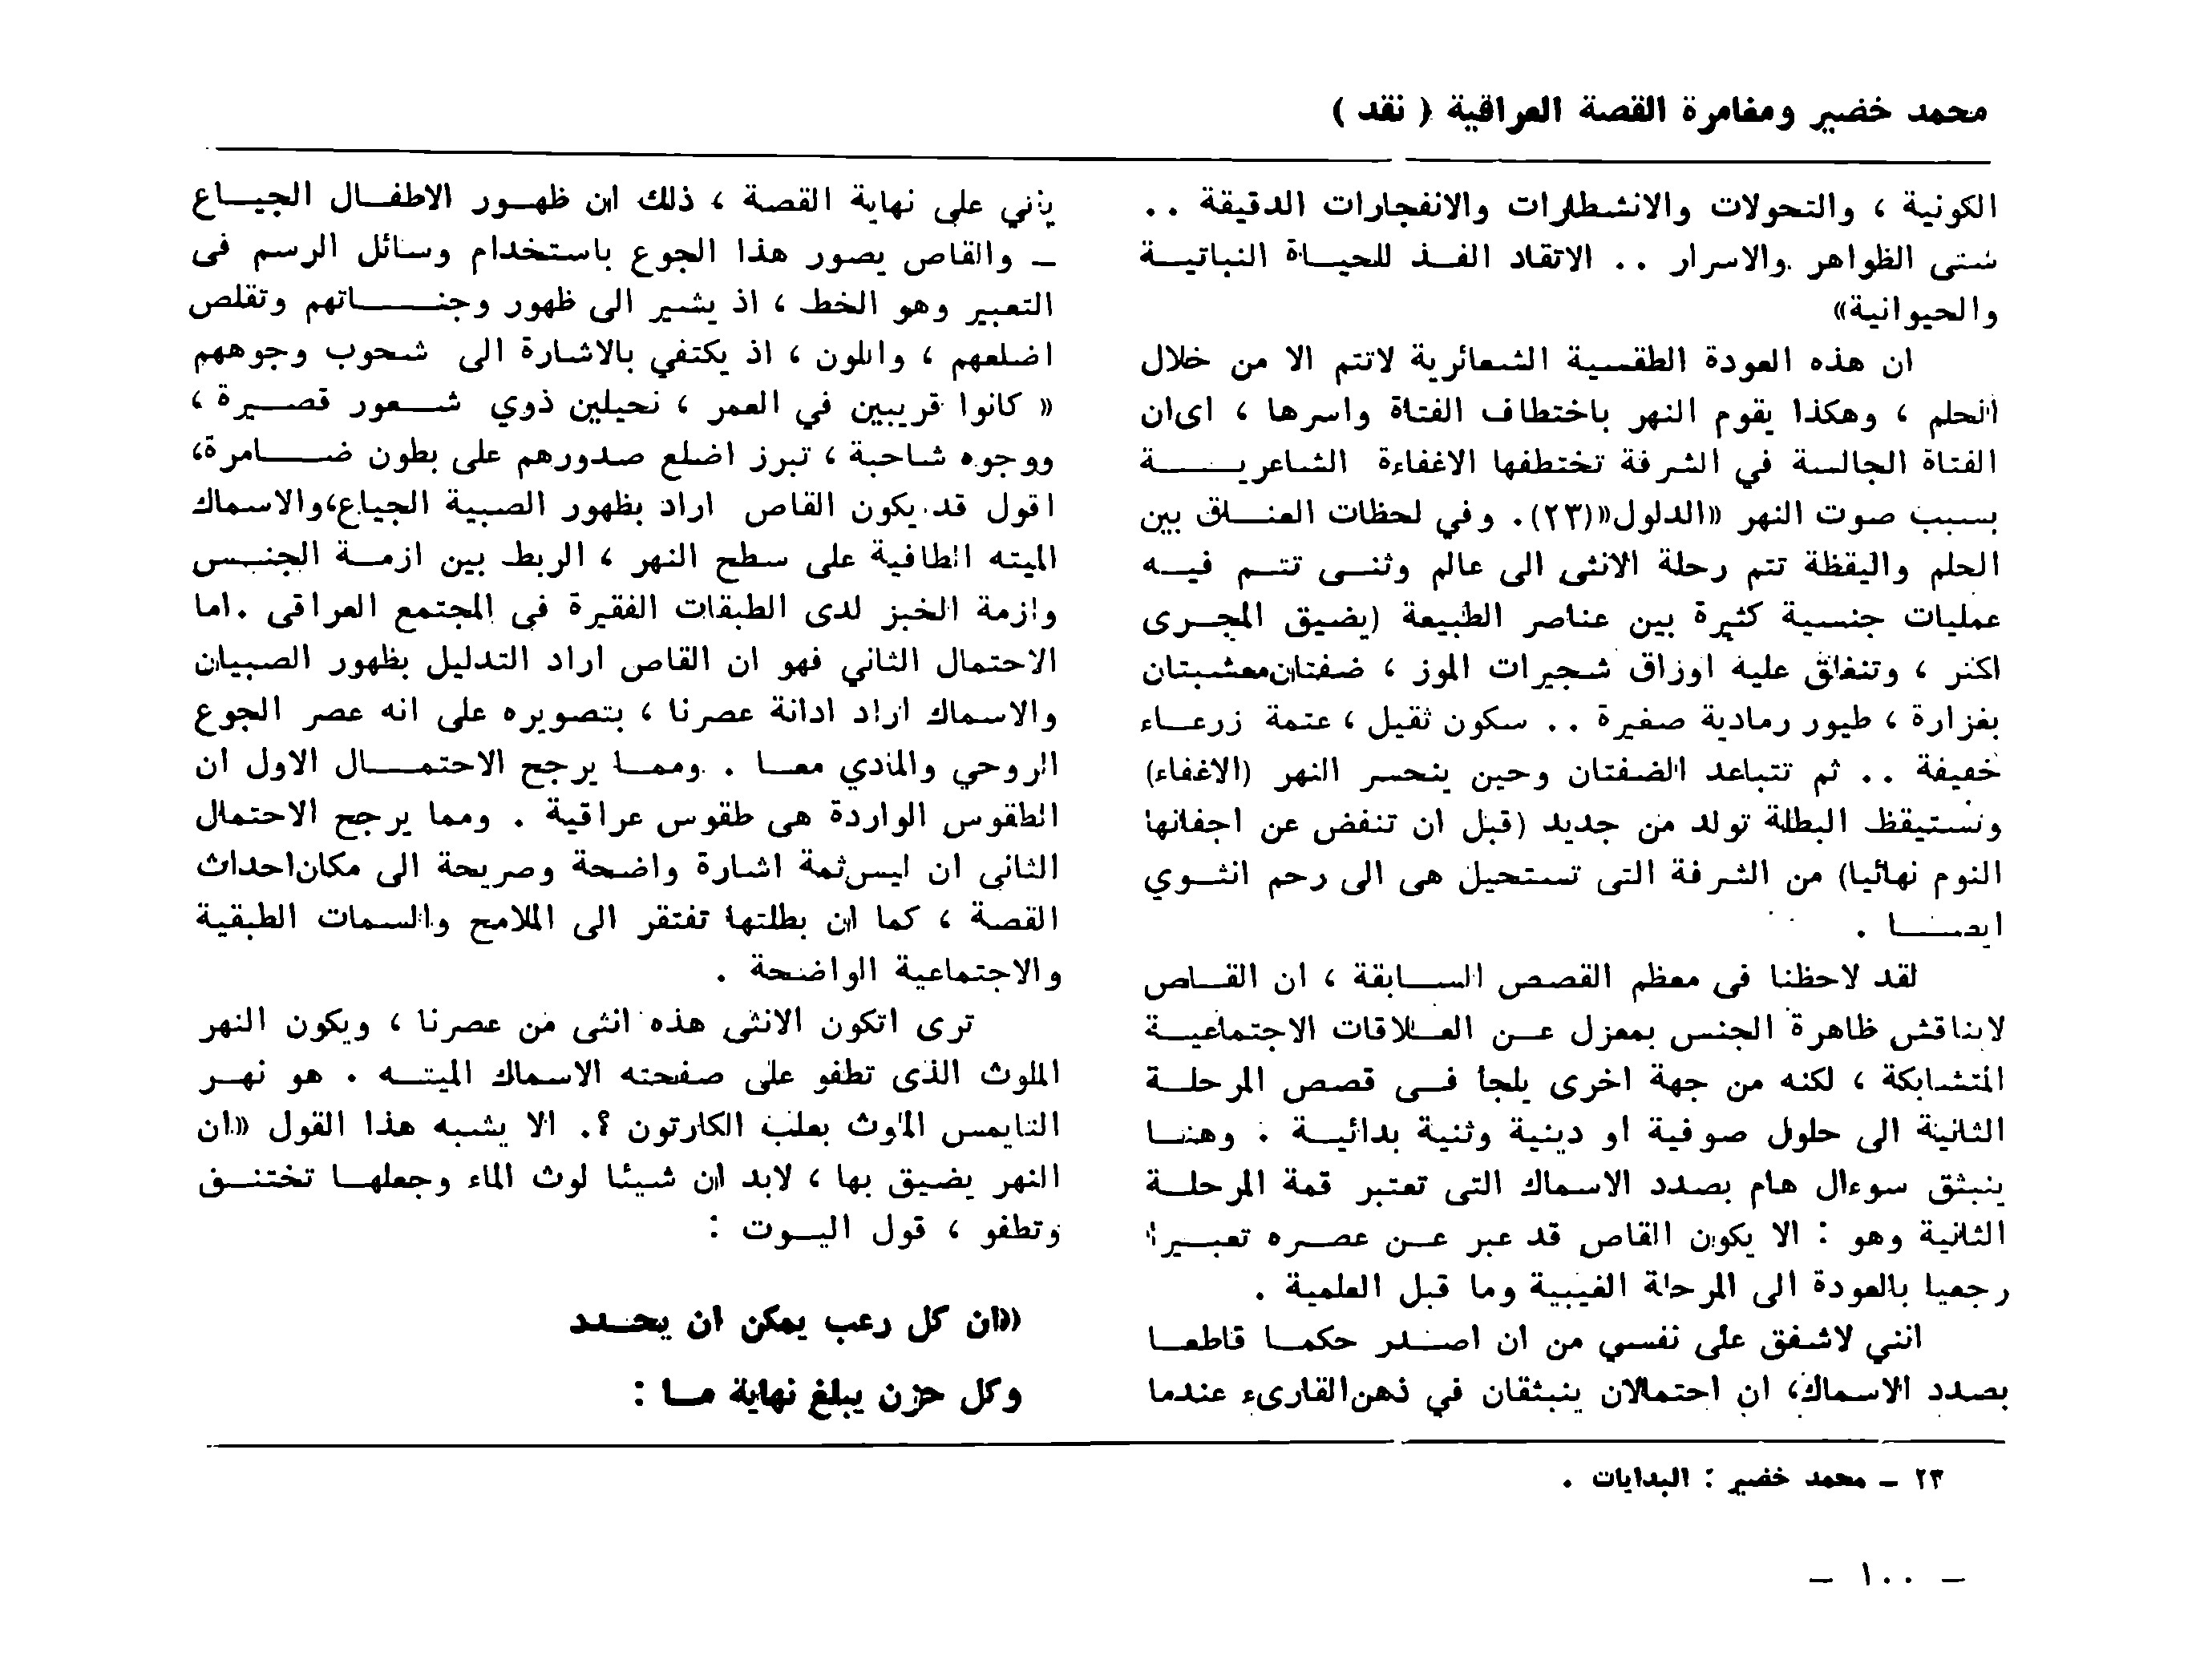 محمد خضير ومغامرة القصة العراقية ( نقد )
الكونية ، والتحولات والانشطارات والانفجارات الدقيقة . .
شتى الظواهر والاسرار . . الاتقاد الفذ للحياة النباتية
والحيوانية»
ان هذه العودة الطقسية الشعائرية لاتتم الا من خلال
الحلم ، وهكذا يقوم النهر باختطاف الفتاة واسرها ، اىان
الفتاة الجالسة في الشرفة تختطفها الاغفاءة الشاعرية
بسبب صوت النهر «الدلول«(٢٣). وفي لحظات العناق بين
الحلم واليقظة تتم رحلة الانثى الى عالم وثنى تتم فيه
عمليات جنسية كثيرة بين عناصر الطبيعة (يضيق المجرى
اكثر ، وتنغلق عليه اوراق شجيرات الموز ، ضفتان معشبتان
بغزارة ، طيور رمادية صغيرة . . سكون ثقيل ، عتمة زرعاء
خفيفة . . ثم تتباعد الضفتان وحين ينحسر النهر (الاغفاء)
وتستيقظ البطلة تولد من جديد (قبل ان تنفض عن اجفانها
النوم نهائيا) من الشرفة التى تستحيل هى الى رحم انثوي
ايضا .
لقد لاحظنا فى معظم القصص السابقة ، ان القاص
لايناقش ظاهرة الجنس بمعزل عن العلاقات الاجتماعية
المتشابكة ، لكنه من جهة اخرى يلجأ فى قصص المرحلة
الثانية الى حلول صوفية او دينية وثنية بدائية . وهنا
ينبثق سوءال هام بصدد الاسماك التى تعتبر قمة المرحلة
الثانية وهو : الا يكون القاص قد عبر عن عصره تعبيرا
رجعيا بالعودة الى المرحلة الغيبية وما قبل العلمية .
انني لاشفق على نفسي من ان اصدر حكما قاطعا
بصدد الاسماك، ان احتمالان ينبثقان في ذهن القارىء عندما
يأتي على نهاية القصة ، ذلك ان ظهور الاطفال الجياع
ـ والقاص يصور هذا الجوع باستخدام وسائل الرسم فى
التعبير وهو الخط ، اذ يشير الى ظهور وجناتهم وتقلص
اضلعهم ، واللون ، اذ يكتفي بالاشارة الى شحوب وجوههم
« كانوا قريبين في العمر ، نحيلين ذوي شعور قصيرة ،
ووجوه شاحبة ، تبرز اضلع صدورهم على بطون ضامرة،
اقول قد يكون القاص اراد بظهور الصبية الجياع،والاسماك
الميته الطافية على سطح النهر ، الربط بين ازمة الجنس
وازمة الخبز لدى الطبقات الفقيرة فى المجتمع العراقى .اما
الاحتمال الثاني فهو ان القاص اراد التدليل بظهور الصبيان
والاسماك اراد ادانة عصرنا ، بتصويره على انه عصر الجوع
الروحي والمادي معا . ومما يرجح الاحتمال الاول ان
الطقوس الواردة هى طقوس عراقية . ومما يرجح الاحتمال
الثانى ان ليس ثمة اشارة واضحة وصريحة الى مكان احداث
القصة ، كما ان بطلتها تفتقر الى الملامح والسمات الطبقية
والاجتماعية الواضحة .
ترى اتكون الانثى هذه انثى من عصرنا ، ويكون النهر
الملوث الذى تطفو على صفحته الاسماك الميته . هو نهر
التايمس الملوث بعلب الكارتون ؟. الا يشبه هذا القول «ان
النهر يضيق بها ، لابد ان شيئا لوث الماء وجعلها تختنق
وتطفو ، قول اليوت :
«ان كل رعب يمكن ان يحدد
وكل حزن يبلغ نهاية ما :
٢٣ ـ محمد خضير : البدايات .
ـ ١٠٠ ـ